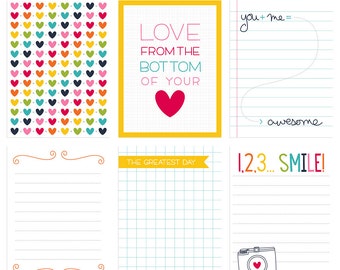 LOVE
FROM THE
BOTTOM
OF YOUR
you + me =
awesome
THE GREATEST DAY
1,2,3... SMILE!